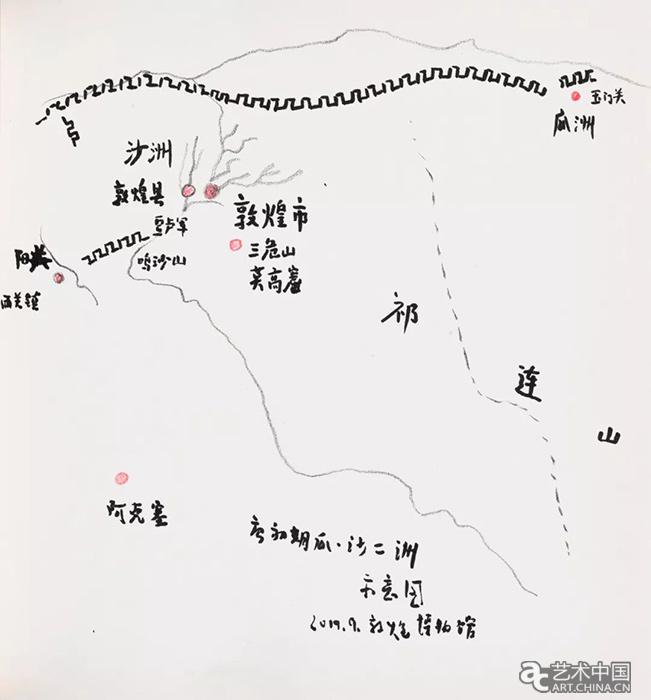 玉门关
瓜洲
沙洲
敦煌县
敦煌市
豆卢军
三危山
鸣沙山
莫高窟
阳关
西关镇
祁
连
山
阿克塞
唐初期瓜·沙二洲
示意图
敦煌博物馆
艺术中国
ART.CHINA.CN